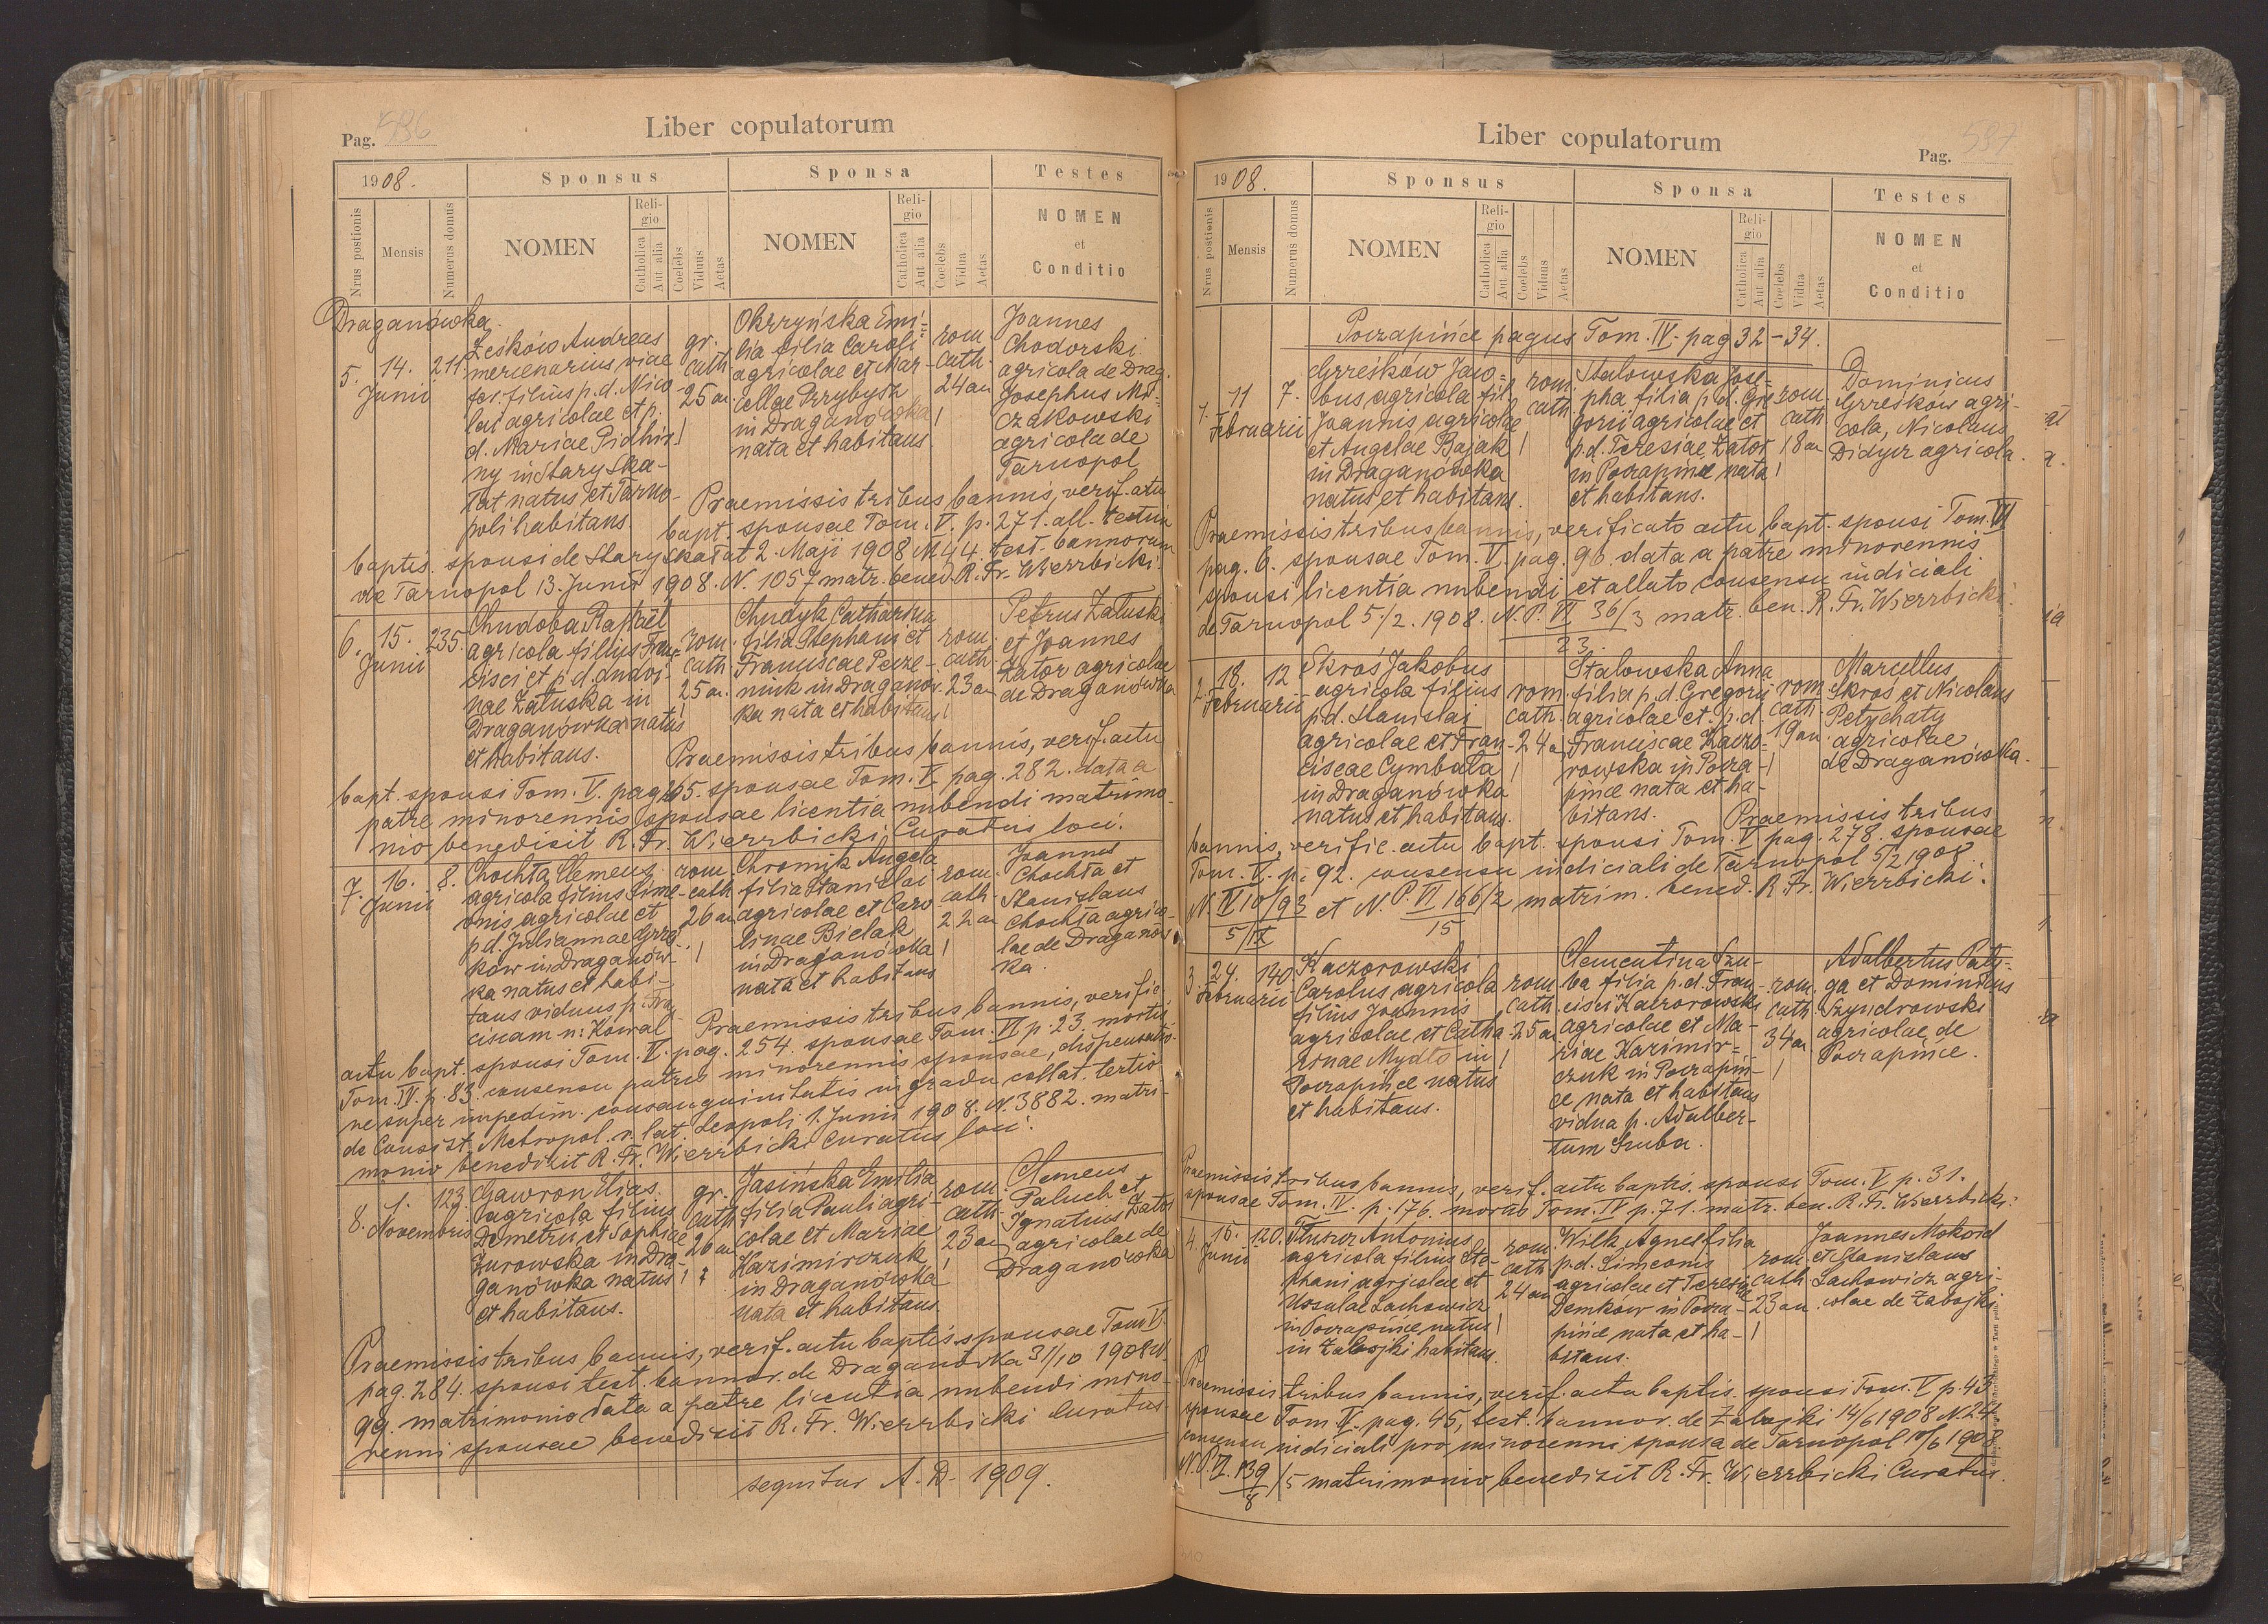 Pag. 536
Liber copulatorum
1908.
Sponsus
Sponsa
Testes
Nrus postionis
Mensis
Numerus domus
NOMEN
Religio
Catholica
Aut alia
Coelebs
Viduus
Aetas
NOMEN
Religio
Catholica
Aut alia
Coelebs
Vidua
Aetas
NOMEN
et
Conditio
Draganówka
5.
14.
Junii
211.
Leśków Andreas
mercenarius viae
fer. filius p.d. Nico-
lai agricolae et p.
d. Mariae Pidhir-
ny in Stary Ska-
łat natus et Tarno-
poli habitans.
gr.
cath.
25 an.
Okrzyńska Emi-
lia filia Caroli
agricolae et Mar-
cellae Przybysz
in Draganówka
nata et habitans
rom.
cath.
24 an
Joannes
Chodorski
agricola de Drag.
Josephus Mo-
czakowski
agricola de
Tarnopol
Praemissis tribus bannis, verif. actu
bapt. sponsae Tom. V. p. 271. all. testim
baptis. sponsi de Stary Skałat 2. Maji 1908 N 44. test. bannorum
de Tarnopol 13. Junii 1908. N. 1057 matr. bened. R. Fr. Wierzbicki.
6.
15.
Junii
235.
Chudoba Raphaël
agricola filius Fran-
cisci et p.d. Ludovi-
cae Załuska in
Draganówka natus
et habitans.
rom.
cath.
25 an.
Chudyk Catharina
filia Stephani et
Franciscae Perze-
niuk in Draganów-
ka nata et habitans
rom.
cath.
23 an
Petrus Załuski
et Joannes
Zator agricolae
de Draganówka
Praemissis tribus bannis, verif. actu
bapt. sponsi Tom. V. pag. 265. sponsae Tom. V. pag. 282. data a
patre minorennis sponsae licentia nubendi matrimo-
nio benedixit R. Fr. Wierzbicki Curatus loci.
7.
16.
Junii
8.
Chochta Clemens
agricola filius Sime-
onis agricolae et
p.d. Juliannae Grze-
ków in Draganów-
ka natus et habi-
tans viduus p. Fran
ciscam n: Kowal
rom.
cath.
26 an
Chromyk Angela
filia Stanislai
agricolae et Caro-
linae Bielak
in Draganówka
nata et habitans
rom.
cath.
22 an
Joannes
Chochta et
Stanislaus
Chochta agrico-
lae de Draganów
ka.
Praemissis tribus bannis, verific.
actu bapt. sponsi Tom. V. pag. 254. sponsae Tom. VI p. 23. mortis
Tom. IV. p. 83. consensu patris minorennis sponsae, dispensatio-
ne super impedim. consanguinitatis in gradu collat. tertio
de Consist. Metropol. r. lat. Leopoli 1. Junii 1908. N. 3882. matri-
monio benedixit R. Fr. Wierzbicki Curatus loci.
8.
1.
Novembris
123.
Gawron Elias
agricola filius
Demetrii et Sophiae
Żurowska in Dra-
ganówka natus
et habitans.
gr.
cath
26 an
Jasińska Emilia
filia Pauli agri-
colae et Mariae
Kazimirczuk
in Draganówka
nata et habitans
rom.
cath.
23 an
Clemens
Paluch et
Ignatius Zator
agricolae de
Draganówka
Praemissis tribus bannis, verif. actu baptis. sponsae Tom V.
pag. 284. sponsi test. bannor. de Draganówka 31/10 1908 N.
99. matrimonio data a patre licentia nubendi mino-
renni sponsae benedixit R. Fr. Wierzbicki Curatus
sequitur A. D. 1909.
Liber copulatorum
Pag. 537
1908.
Sponsus
Sponsa
Testes
Nrus postionis
Mensis
Numerus domus
NOMEN
Religio
Catholica
Aut alia
Coelebs
Viduus
Aetas
NOMEN
Religio
Catholica
Aut alia
Coelebs
Vidua
Aetas
NOMEN
et
Conditio
Poczapińce pagus Tom. IV. pag 32-34.
1.
11
Februarii
7.
Grzesków Jaco-
bus agricola fil
Joannis agricolae
et Angelae Bajak
in Draganówka
natus et habitans.
rom.
cath.
Stalowska Jose-
pha filia p.d. Gre-
gorii agricolae et
p.d. Teresiae Zator
in Poczapińce nata
et habitans.
rom.
cath.
18 an
Dominicus
Grzesków agri-
cola, Nicolaus
Didyk agricola.
Praemissis tribus bannis, verificato actu bapt. sponsi Tom. VI
pag. 6. sponsae Tom. V. pag. 96. data a patre minorennis
sponsi licentia nubendi et allato consensu iudiciali
de Tarnopol 5/2. 1908. N. P. VI 36/3 matr. ben. R. Fr. Wierzbicki.
23.
2.
18.
Februarii
12
Skroś Jakobus
agricola filius
p.d. Stanislai
agricolae et Fran-
ciscae Cymbała
in Draganówka
natus et habitans.
rom.
cath.
24 a
Stalowska Anna
filia p.d. Gregorii
agricolae et p.d.
Franciscae Kaczo-
rowska in Pocza-
pińce nata et ha-
bitans.
rom.
cath.
19 an.
Marcellus
Skroś et Nicolaus
Petychaty
agricolae
de Draganówka.
Praemissis tribus
bannis, verific. actu bapt. sponsi Tom. V pag. 278. sponsae
Tom. V. p. 92. consensu iudiciali de Tarnopol 5/2 1908
N. IV 10/93 et N. P. VI 166/2 matrim. bened. R. Fr. Wierzbicki.
5/IX
15
3.
24.
Februarii
140.
Kaczorowski
Carolus agricola
filius Joannis
agricolae et Catha-
rinae Mydło in
Poczapińce natus
et habitans.
rom.
cath.
25 a
Clementina Szu-
ba filia p.d. Fran-
cisci Kaczorowski
agricolae et Ma-
riae Kazimir-
czuk in Poczapiń-
ce nata et habitans
vidua p. Adalber-
tum Szuba.
rom.
cath.
34 an.
Adalbertus Paty-
ga et Dominicus
Szyndrowski
agricolae de
Poczapińce.
Praemissis tribus bannis, verif. actu baptis. sponsi Tom. V p. 31.
sponsae Tom. IV. p. 176. mortis Tom. IV p. 71. matr. ben. R. Fr. Wierzbicki.
4.
15.
Junii
120.
Thusur Antonius
agricola filius Ste-
phani agricolae et
Ursulae Lachowicz
in Poczapińce natus
in Zabojki habitans.
rom.
cath.
24 an
Wilk Agnes filia
p.d. Simeonis
agricolae et Teresiae
Demków in Pocza-
pińce nata et ha-
bitans.
rom.
cath.
23 an.
Joannes Mokrid
et Stanislaus
Lachowicz agri-
colae de Zabojki
Praemissis tribus bannis, verif. actu baptis. sponsi Tom. V p. 43
sponsae Tom V. pag. 45, test. bannor. de Zabojki 14/6 1908 N. 24
consensu iudiciali pro minorenni sponsa de Tarnopol 10/6 1908.
N. P. VI. 139/8 /5 matrimonio benedixit R. Fr. Wierzbicki Curatus.